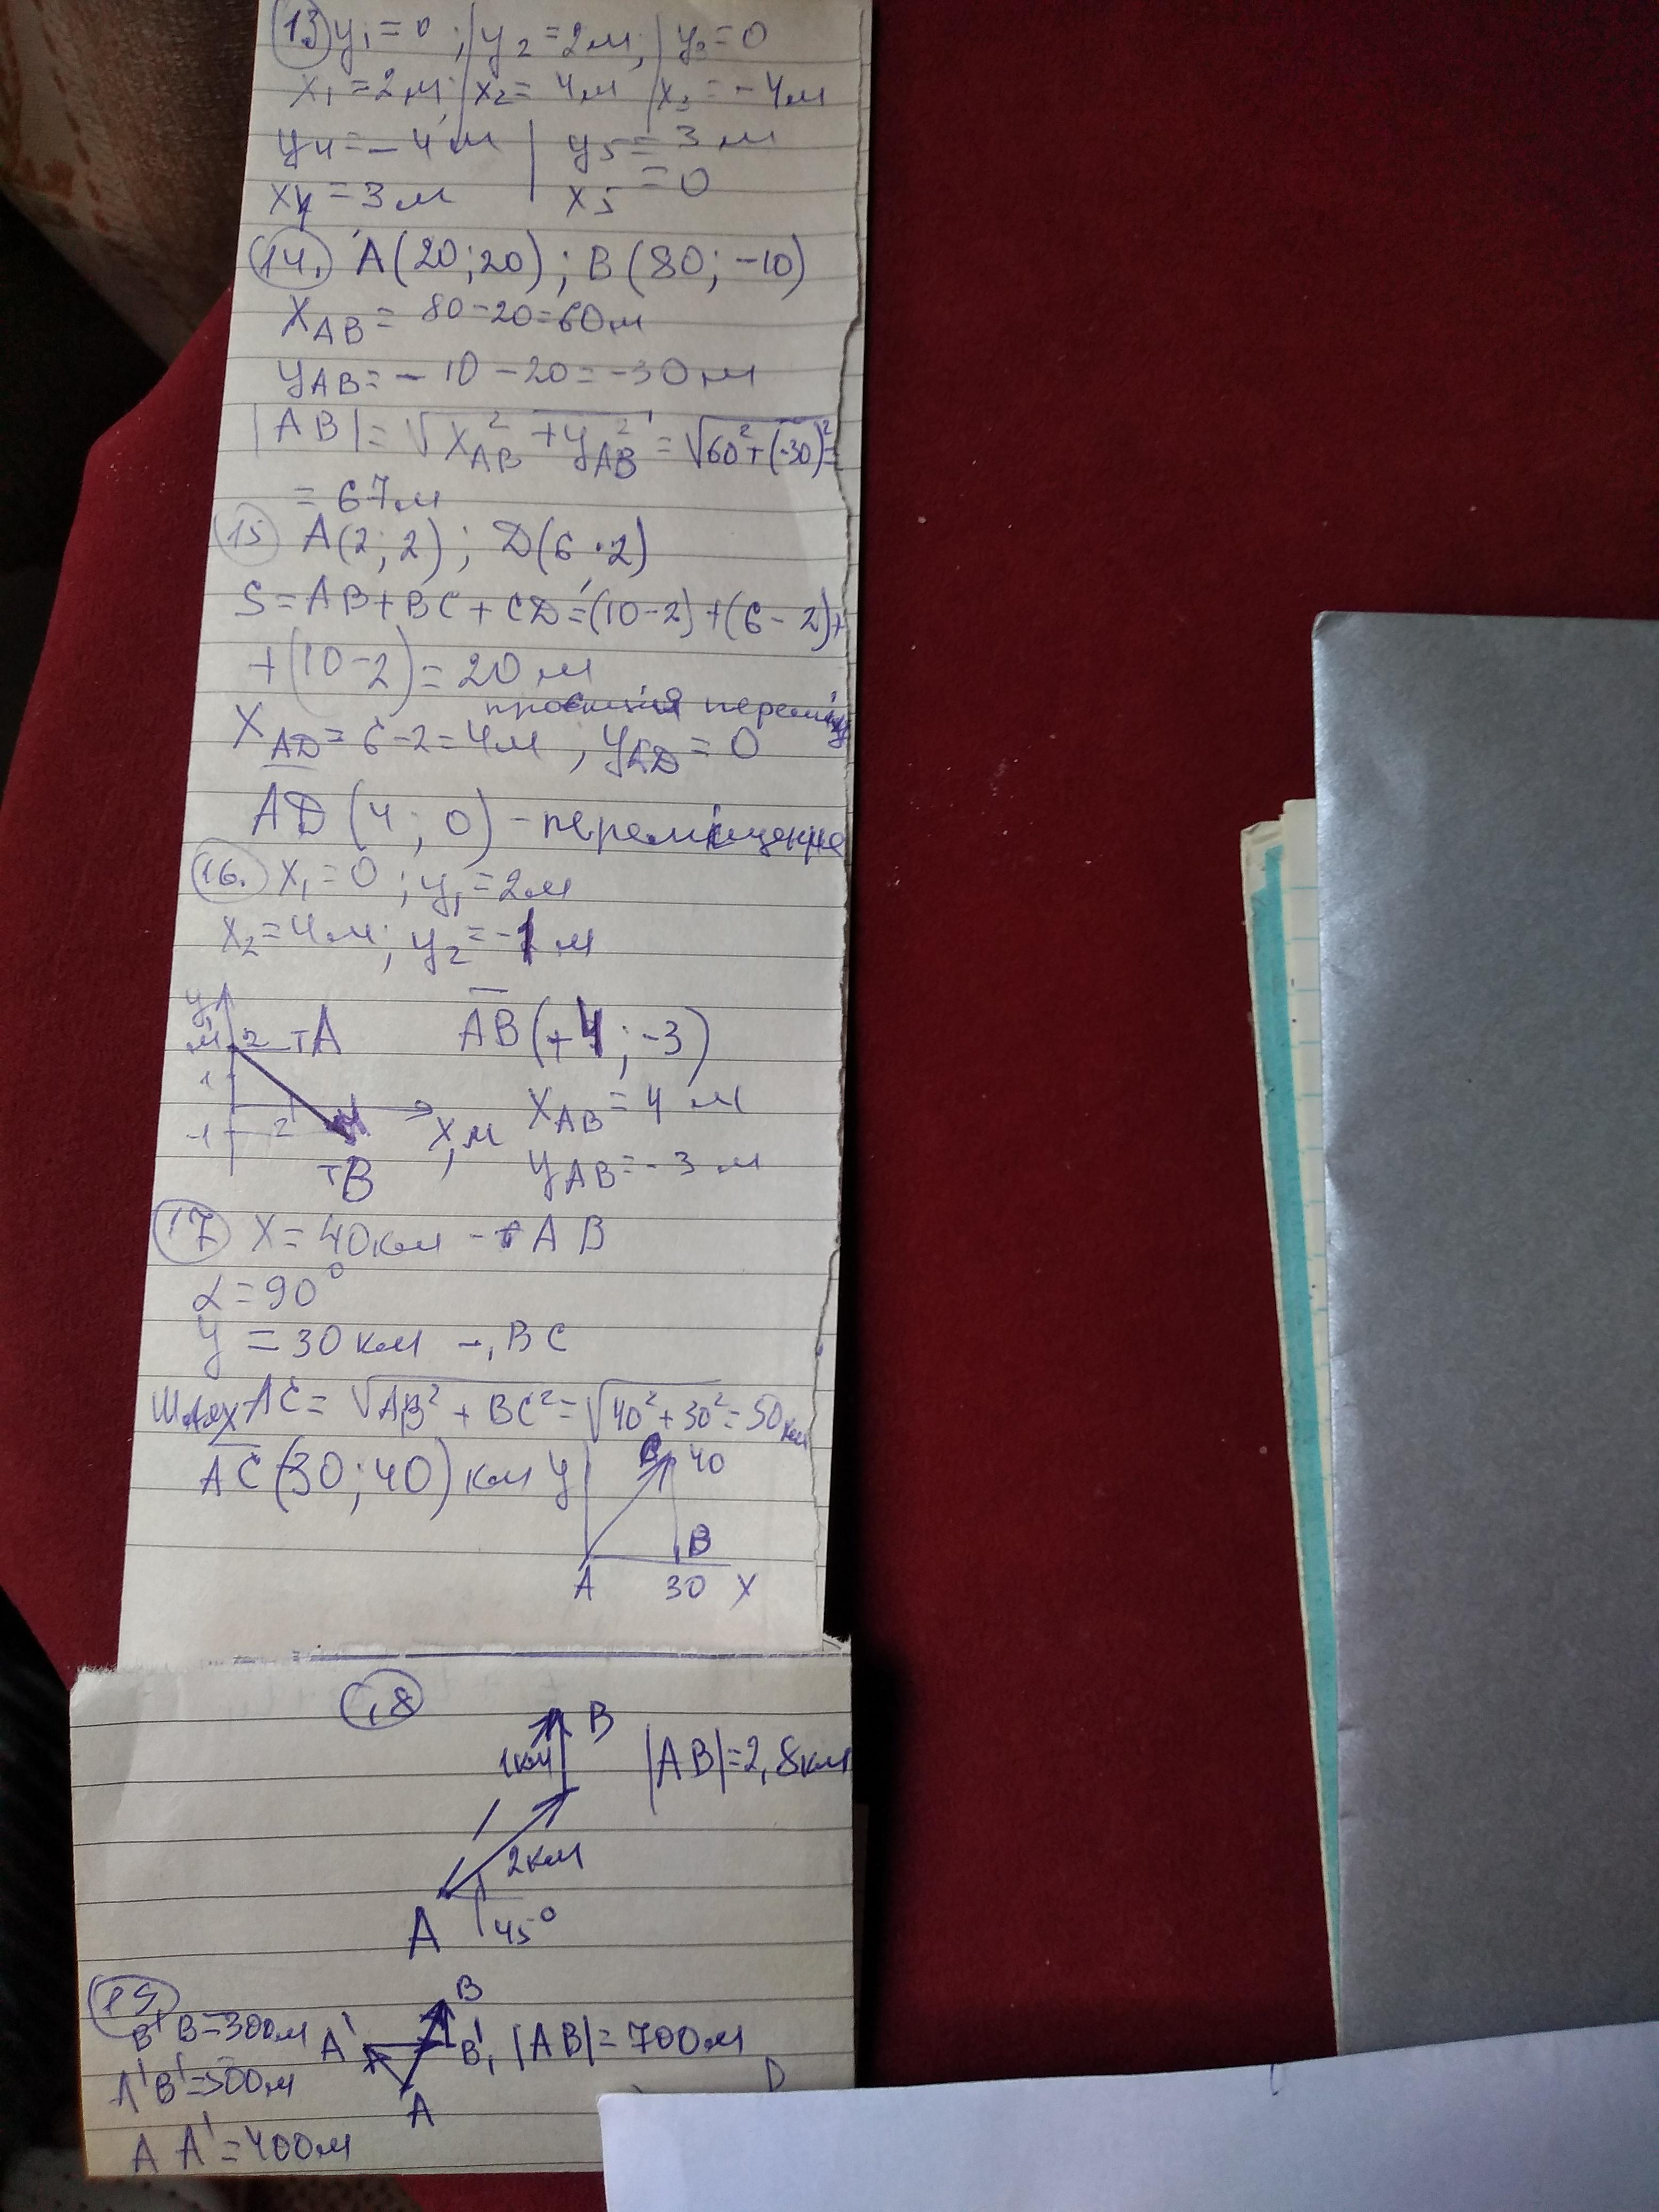 13 y₁ = 0 ; / y₂ = 2м; / y₃ = 0
x₁ = 2м; / x₂ = 4м / x₃ = -4м
y₄ = -4м | y₅ = 3м
x₄ = 3м | x₅ = 0
14. A(20;20) ; B(80; -10)
X_AB = 80-20=60м
y_AB = -10-20=-30м
|AB| = √X_AB² + y_AB² = √60²+(-30)² =
= 67м
15 A(2; 2) ; D(6; 2)
S = AB + BC + CD = (10-2) + (6-2) +
+ (10-2) = 20м
проекція переміщ
X_AD = 6-2=4м ; y_AD = 0
AD (4; 0) - переміщення
16. x₁ = 0 ; y₁ = 2м
x₂ = 4м; y₂ = -1м
y, м 2 тA
1
-1 2 x, м
тB
AB (+4; -3)
X_AB = 4 м
y_AB = -3 м
17 X = 40км - AB
α = 90°
y = 30 км - BC
Шлях AC = √AB² + BC² = √40²+30² = 50км
AC (30; 40) км
y C 40
B
A 30 X
18
B
1км |AB|=2,8км
2км
A 45°
19.
B
B'B=300м A' B', |AB|=700м
A'B'=500м
A
AA'=400м